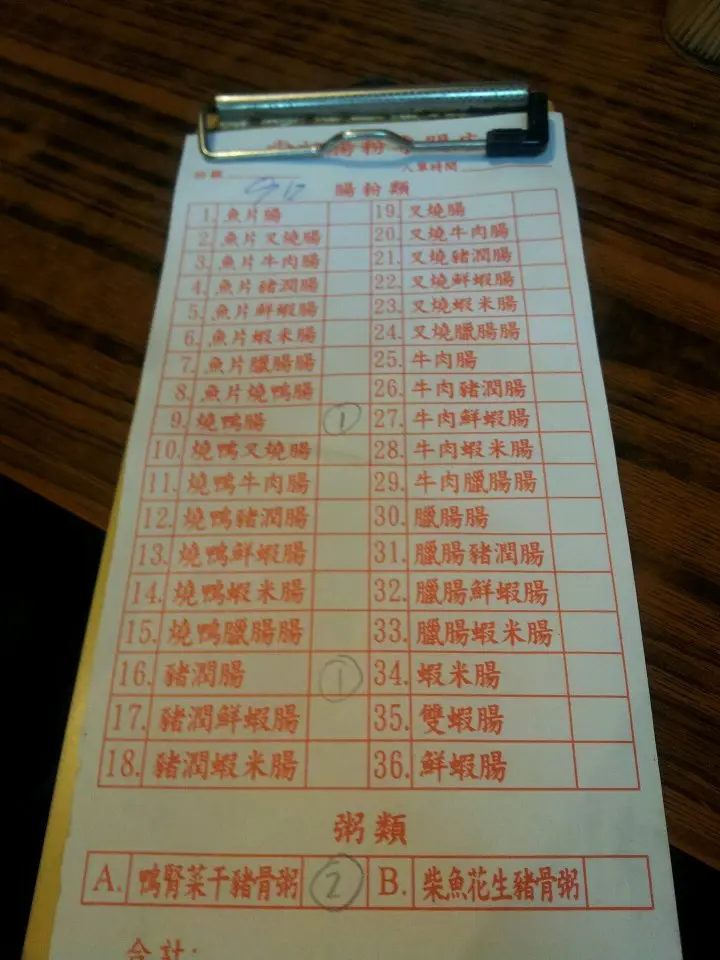 腸粉
入單時間
腸粉類
1. 魚片腸 19. 叉燒腸
2. 魚片叉燒腸 20. 叉燒牛肉腸
3. 魚片牛肉腸 21. 叉燒豬潤腸
4. 魚片豬潤腸 22. 叉燒鮮蝦腸
5. 魚片鮮蝦腸 23. 叉燒蝦米腸
6. 魚片蝦米腸 24. 叉燒臘腸腸
7. 魚片臘腸腸 25. 牛肉腸
8. 魚片燒鴨腸 26. 牛肉豬潤腸
9. 燒鴨腸 1 27. 牛肉鮮蝦腸
10. 燒鴨叉燒腸 28. 牛肉蝦米腸
11. 燒鴨牛肉腸 29. 牛肉臘腸腸
12. 燒鴨豬潤腸 30. 臘腸腸
13. 燒鴨鮮蝦腸 31. 臘腸豬潤腸
14. 燒鴨蝦米腸 32. 臘腸鮮蝦腸
15. 燒鴨臘腸腸 33. 臘腸蝦米腸
16. 豬潤腸 1 34. 蝦米腸
17. 豬潤鮮蝦腸 35. 雙蝦腸
18. 豬潤蝦米腸 36. 鮮蝦腸
粥類
A. 鴨腎菜干豬骨粥 2 B. 柴魚花生豬骨粥
合計: